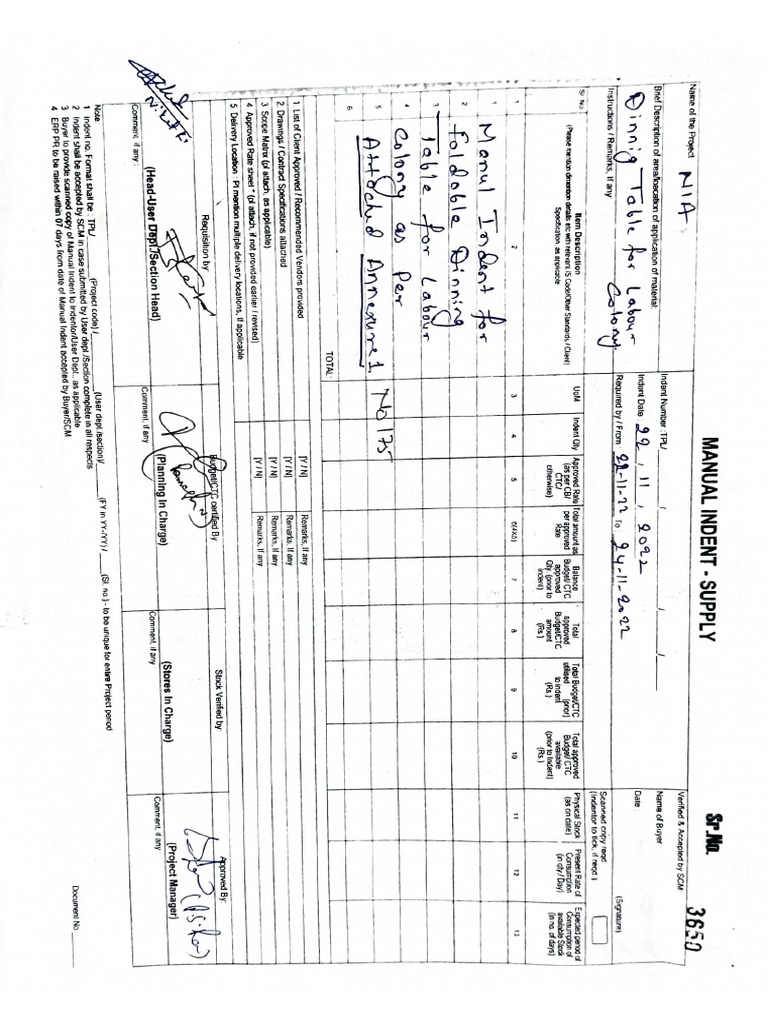 MANUAL INDENT - SUPPLY
Sr.No. 3650
Name of the Project NIA
Indent Number :TPL/ / / /
Verified & Accepted by SCM
Brief Description of area/loacation of application of material:
Dinnig Table for Labour
Colony.
Indent Date 22, 11, 2022
Name of Buyer
Instructions / Remarks, If any
Required by / From 22-11-22 To 24-11-2022
Date :
(Signature)
Scanned copy reqd
(Indentor to tick, if reqd )
Sr No
Item Description
(Please mention dimention details etc with relevent IS Code/Other Standards / Client)
Specification, as applicable
UoM
Indent Qty
Approved Rate
(as per CB/
CTC/
otherwise)
Total amount as
per approved
Rate
Balance
approved
Budget/ CTC
Qty (prior to
indent)
Total
approved
Budget/CTC
amount
(Rs )
Total Budget/CTC
utilised (prior)
to indent
(Rs )
Total approved
Budget/ CTC
available
(prior to Indent)
(Rs )
Physical Stock
(as on date)
Present Rate of
Consumption
(in qty / Day)
Expected period of
Consumption of
available Stock
(in no. of days)
1 2 3 4 5 6(4X5) 7 8 9 10 11 12 13
1 Manul Indent for
2 foldable Dinning
3 Table for Labour
4 Colony as Per
5 Attached Annexure 1. No 175
6
TOTAL:
1 List of Client Approved / Recommended Vendors provided [Y / N] Remarks, If any
2 Drawings / Contract Specifications attached [Y / N] Remarks, If any
3 Scope Matrix (pl attach, as applicable) [Y / N] Remarks, If any
4 Approved Rate sheet * (pl attach, if not provided earlier / revised) [Y / N] Remarks, If any
5 Delivery Location : Pl mention multiple delivery locations, If applicable
Requisition by
Budget/CTC certified By
Stock Verified by
Approved By:
(Head-User Dept./Section Head)
(Planning In Charge)
(Stores In Charge)
(Project Manager)
Comment, if any :
Comment, if any
Comment, if any
Comment, if any
Note
1 Indent no. Format shall be : TPL/ (Project code) / (User dept /section)/ (FY in YY-/YY) / (Sl. no ) - to be unique for entire Project period
2 Indent shall be accepted by SCM in case submitted by User dept /Section complete in all respects
3 Buyer to provide scanned copy of Manual Indent to Indentor/User Dept., as applicable
4 ERP PR to be raised within 07 days from date of Manual Indent accepted by Buyer/SCM
Document No